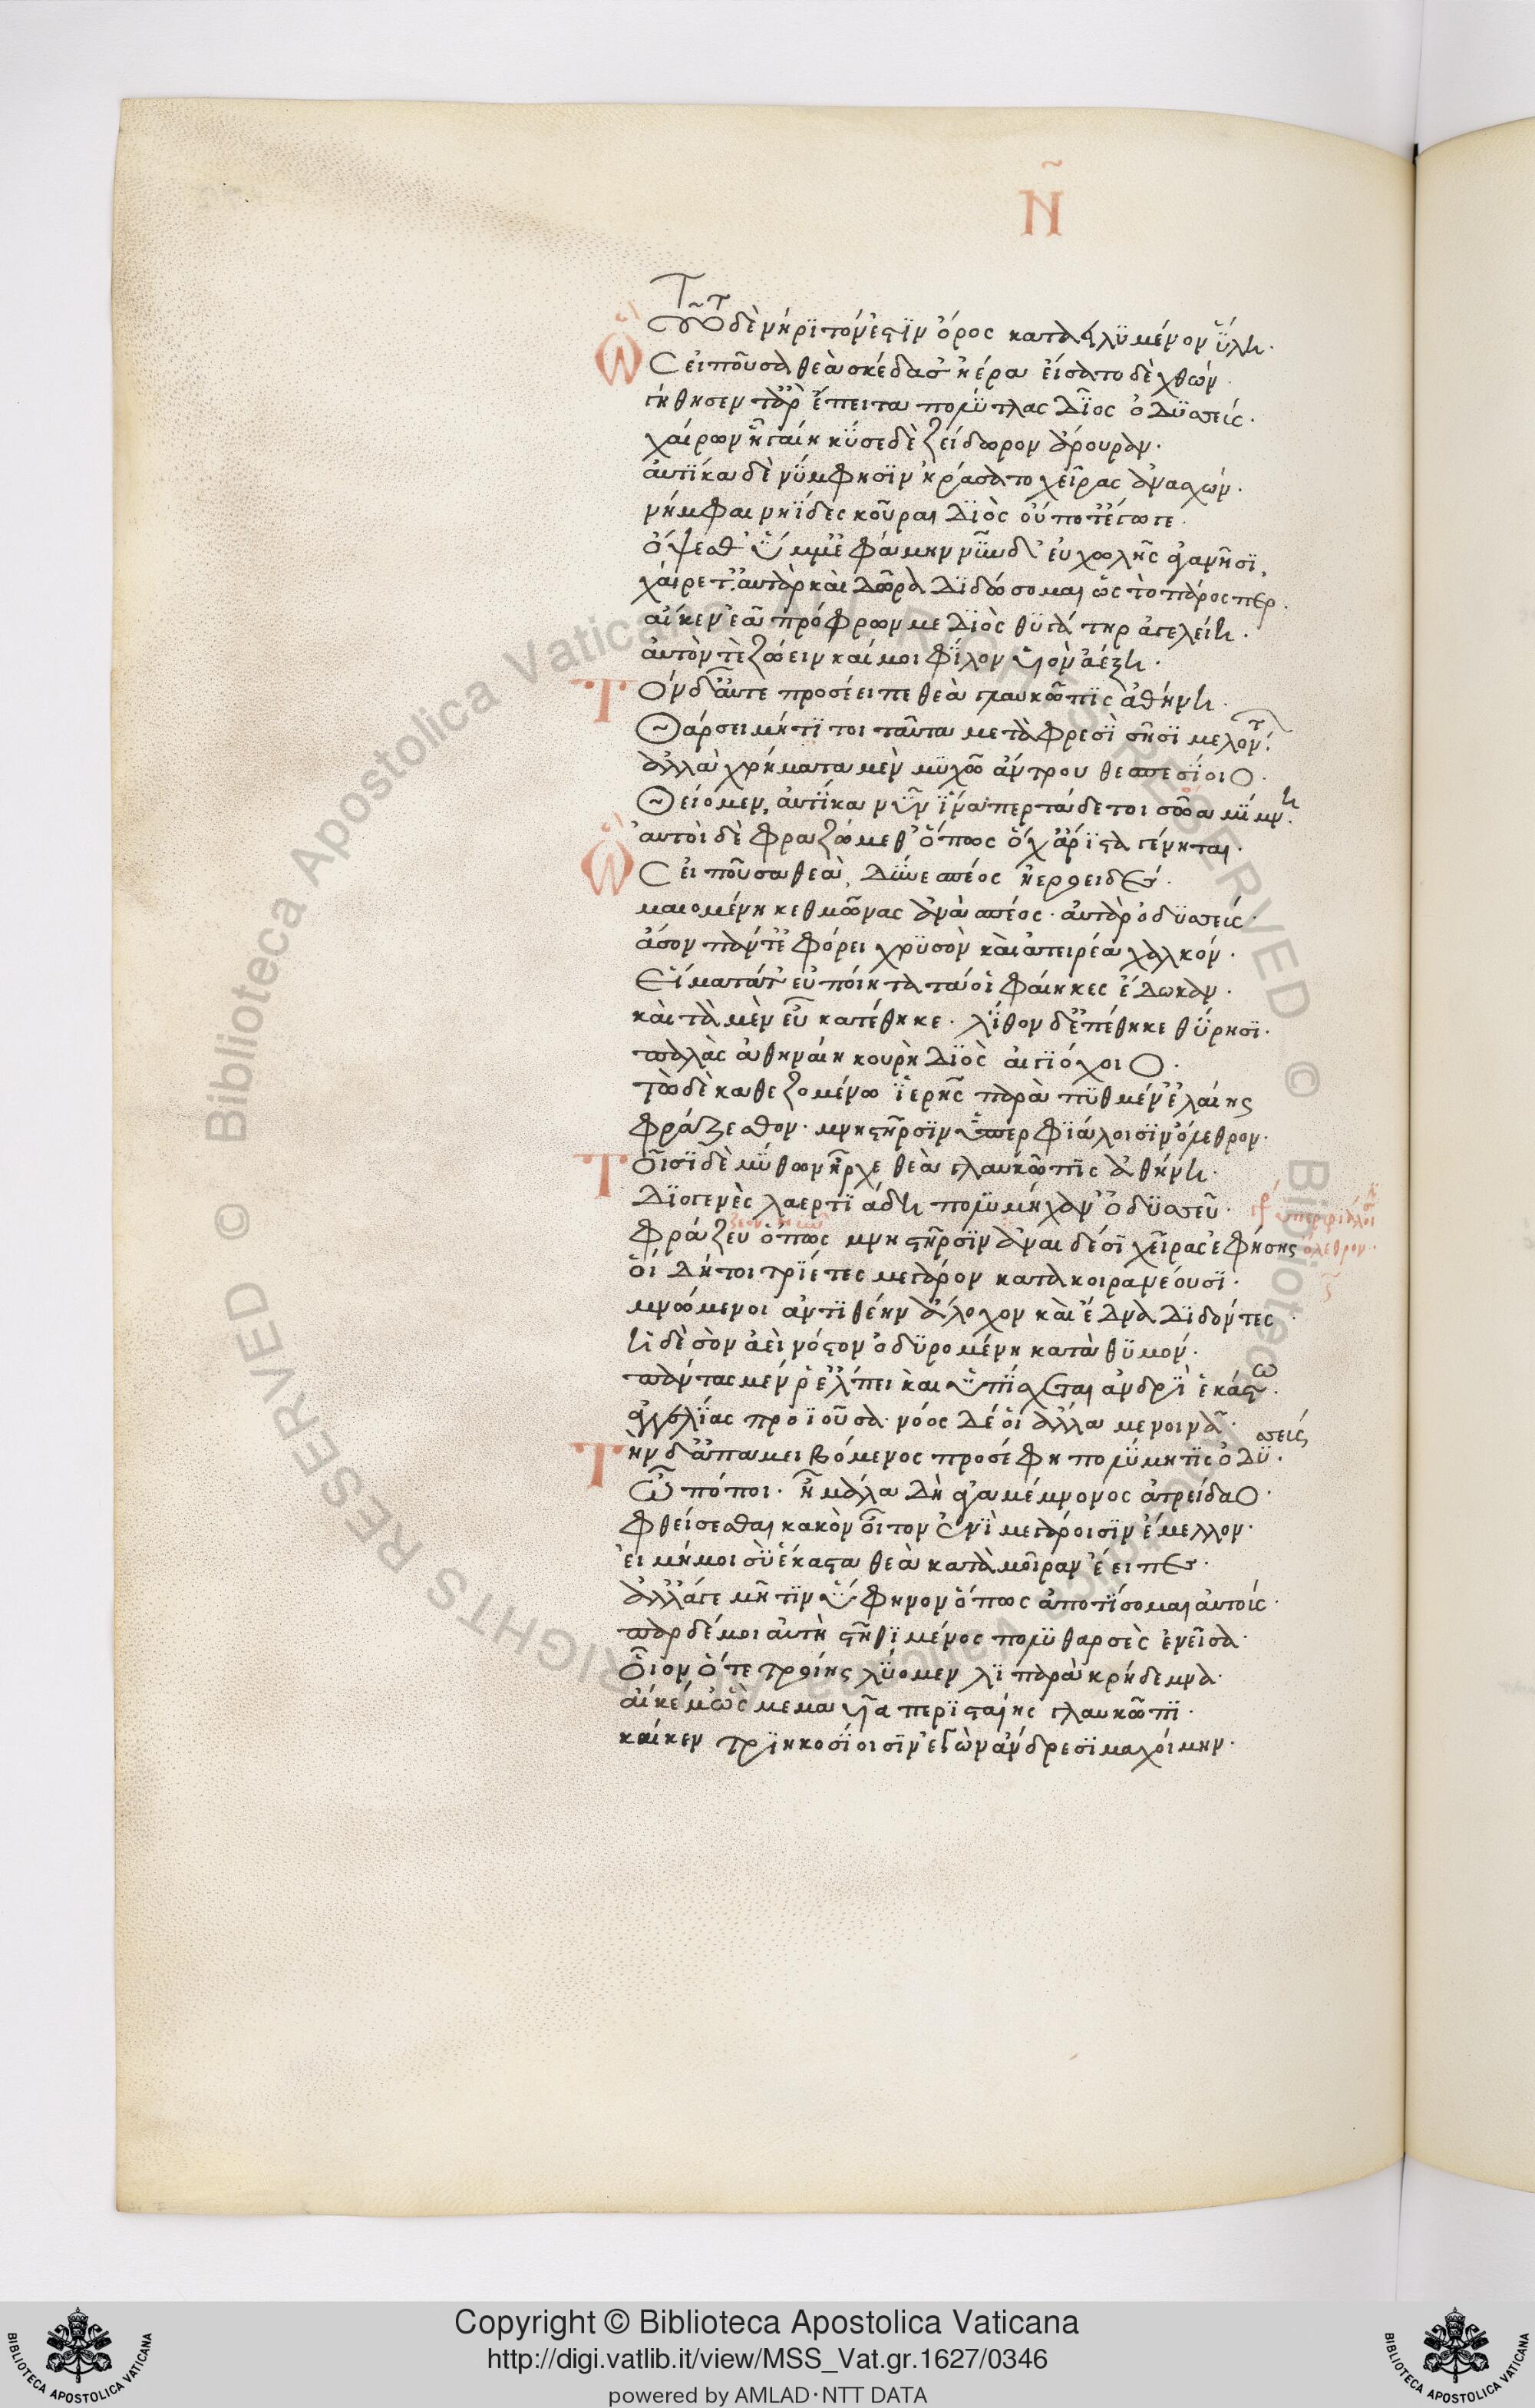 Ν
τοῦτο δὲ νήριτόν ἐστιν ὄρος καταειλυμένον ὕλη·
Ὣς εἰποῦσα θεὰ σκέδασ' ἠέρα εἴσατο δὲ χθών·
γήθησεν τ' ἄρ' ἔπειτα πολύτλας δῖος ὀδυσσεύς·
χαίρων ᾗ γαίῃ κύσε δὲ ζείδωρον ἄρουραν·
αὐτίκα δὲ νύμφησιν ἠράσατο χεῖρας ἀνασχών·
νύμφαι νηϊάδες κοῦραι Διὸς οὔποτ' ἔγωγε·
ὄψεσθ' ὔμμ' ἐφάμην νῦν δ' εὐχωλῇς ἀγανῇσι,
χαίρετ'· ἀτὰρ καὶ δῶρα διδώσομαι ὡς τὸ πάρος περ·
αἴ κεν ἐᾷ πρόφρων με Διὸς θυγάτηρ ἀγελείη·
αὐτόν τε ζώειν καί μοι φίλον υἱὸν ἀέξη·
Τὸν δ' αὖτε προσέειπε θεὰ γλαυκῶπις ἀθήνη·
Θάρσει μή τι τοι ταῦτα μετὰ φρεσὶ σῇσι μελόντων·
ἀλλὰ χρήματα μὲν μυχῷ ἄντρου θεσπεσίοιο·
Θείομεν, αὐτίκα νῦν ἵνα περ τάδε τοι σῶα μίμνη·
αὐτοὶ δὲ φραζώμεθ' ὅπως ὄχ' ἄριστα γένηται·
Ὣς εἰποῦσα θεὰ, δῦνε σπέος ἠεροειδές·
μαιομένη κευθμῶνας ἀνὰ σπέος· αὐτὰρ ὀδυσσεύς·
ἆσσον πάντ' ἐφόρει χρυσὸν καὶ ἀτειρέα χαλκόν·
Εἵματά τ' εὐποίητα τά οἱ φαίηκες ἔδωκαν·
καὶ τὰ μὲν εὖ κατέθηκε· λίθον δ' ἐπέθηκε θύρῃσι·
παλλὰς ἀθηναίη κούρη Διὸς αἰγιόχοιο·
τὼ δὲ καθεζομένω ἱερῆς παρὰ πυθμέν' ἐλαίης
φράζεσθον· μνηστῆρσιν ὑπερφιάλοισιν ὄλεθρον·
Τοῖσι δὲ μύθων ἦρχε θεὰ γλαυκῶπις ἀθήνη·
Διογενὲς λαερτιάδη πολυμήχαν' ὀδυσσεῦ·
φράζευ ὅπως μνηστῆρσιν ἀναιδέσι χεῖρας ἐφήσης
ὑπερφιάλοισιν
ὄλεθρον·
οἳ δή τοι τρίετες μέγαρον κατακοιρανέουσι·
μνώμενοι ἀντιθέην ἄλοχον καὶ ἕδνα διδόντες·
ἡ δὲ σὸν ἀεὶ νόστον ὀδυρομένη κατὰ θυμόν·
πάντας μέν ῥ' ἔλπει καὶ ὑπίσχεται ἀνδρὶ ἑκάστω·
ἀγγελίας προϊοῦσα· νόος δέ οἱ ἄλλα μενοινᾷ·
Τὴν δ' ἀπαμειβόμενος προσέφη πολύμητις ὀδυσσεύς·
Ὦ πόποι· ἦ μάλα δὴ ἀγαμέμνονος ἀτρείδαο·
φθείσεσθαι κακὸν οἶτον ἐνὶ μεγάροισιν ἔμελλον·
εἰ μή μοι σὺ ἕκαστα θεὰ κατὰ μοῖραν ἔειπες·
ἀλλ' ἄγε μῆτιν ὕφηνον ὅπως ἀποτίσομαι αὐτούς·
πὰρ δέ μοι αὐτὴ στῆθι μένος πολυθαρσὲς ἐνεῖσα·
οἷον ὅτε τροίης λύομεν λιπαρὰ κρήδεμνα·
αἴ κέ μοι ὣς μεμαυῖα περισταίης γλαυκῶπι·
καί κεν τριηκοσίοισιν ἐγὼν ἄνδρεσι μαχοίμην·
Copyright © Biblioteca Apostolica Vaticana
http://digi.vatlib.it/view/MSS_Vat.gr.1627/0346
powered by AMLAD·NTT DATA